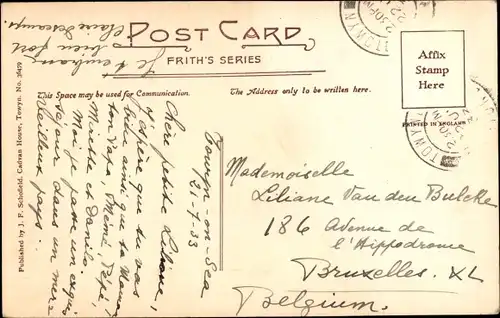 POST CARD
FRITH'S SERIES
This Space may be used for Communication.
The Address only to be written here.
Affix
Stamp
Here
PRINTED IN ENGLAND
TOWYN
2 30 PM
22
TOWYN
Published by J. F. Schofield, Cadvan House, Towyn. No.
Towyn-on-Sea
21-7-33
Chère petite Liliane,
J'espère que tu vas
bien ainsi que ta Maman
ton Papa, Mémé, Pépé,
Mirette et Danile.
Moi je passe un exquis
séjour dans un mer-
veilleux pays...
Je t'embrasse
bien fort
Claire
Mademoiselle
Liliane Van den Bulcke
186 Avenue de
l'Hippodrome
Bruxelles. XL
Belgium.